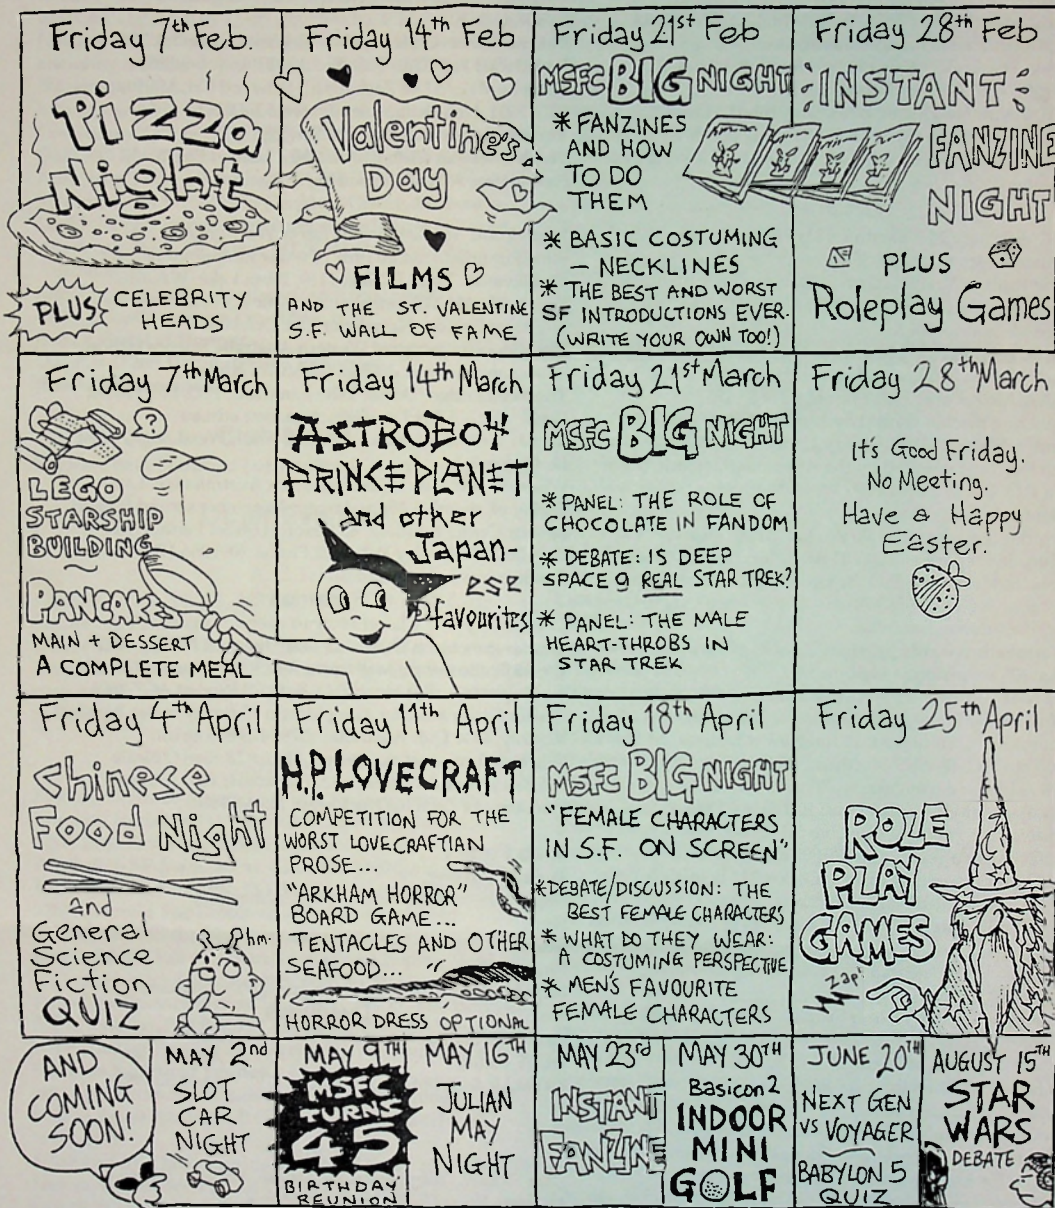 Friday 7th Feb.
Pizza
Night
PLUS
CELEBRITY
HEADS
Friday 14th Feb
Valentine's
Day
FILMS
AND THE ST. VALENTINE
S.F. WALL OF FAME
Friday 21st Feb
MSFC BIG NIGHT
* FANZINES
AND HOW
TO DO
THEM
* BASIC COSTUMING
– NECKLINES
* THE BEST AND WORST
SF INTRODUCTIONS EVER.
(WRITE YOUR OWN TOO!)
Friday 28th Feb
INSTANT
FANZINE
NIGHT
PLUS
Roleplay Games
Friday 7th March
?
LEGO
STARSHIP
BUILDING
~
PANCAKES
MAIN + DESSERT
A COMPLETE MEAL
Friday 14th March
ASTROBOY
PRINCE PLANET
and other
Japan-
ese
favourites
Friday 21st March
MSFC BIG NIGHT
* PANEL: THE ROLE OF
CHOCOLATE IN FANDOM
* DEBATE: IS DEEP
SPACE 9 REAL STAR TREK?
* PANEL: THE MALE
HEART-THROBS IN
STAR TREK
Friday 28th March
It's Good Friday.
No Meeting.
Have a Happy
Easter.
Friday 4th April
Chinese
Food Night
and
General
Science
Fiction
QUIZ
hm.
Friday 11th April
H.P. LOVECRAFT
COMPETITION FOR THE
WORST LOVECRAFTIAN
PROSE...
"ARKHAM HORROR"
BOARD GAME...
TENTACLES AND OTHER
SEAFOOD...
HORROR DRESS OPTIONAL
Friday 18th April
MSFC BIG NIGHT
"FEMALE CHARACTERS
IN S.F. ON SCREEN"
* DEBATE/DISCUSSION: THE
BEST FEMALE CHARACTERS
* WHAT DO THEY WEAR:
A COSTUMING PERSPECTIVE
* MEN'S FAVOURITE
FEMALE CHARACTERS
Friday 25th April
ROLE
PLAY
GAMES
Zap!
AND
COMING
SOON!
MAY 2nd
SLOT
CAR
NIGHT
MAY 9TH
MSFC
TURNS
45
BIRTHDAY
REUNION
MAY 16TH
JULIAN
MAY
NIGHT
MAY 23rd
INSTANT
FANZINE
MAY 30TH
Basicon 2
INDOOR
MINI
GOLF
JUNE 20TH
NEXT GEN
VS VOYAGER
BABYLON 5
QUIZ
AUGUST 15TH
STAR
WARS
DEBATE